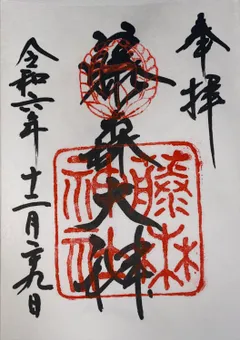 奉拝
藤森大神
藤森神社
令和六年十二月二九日